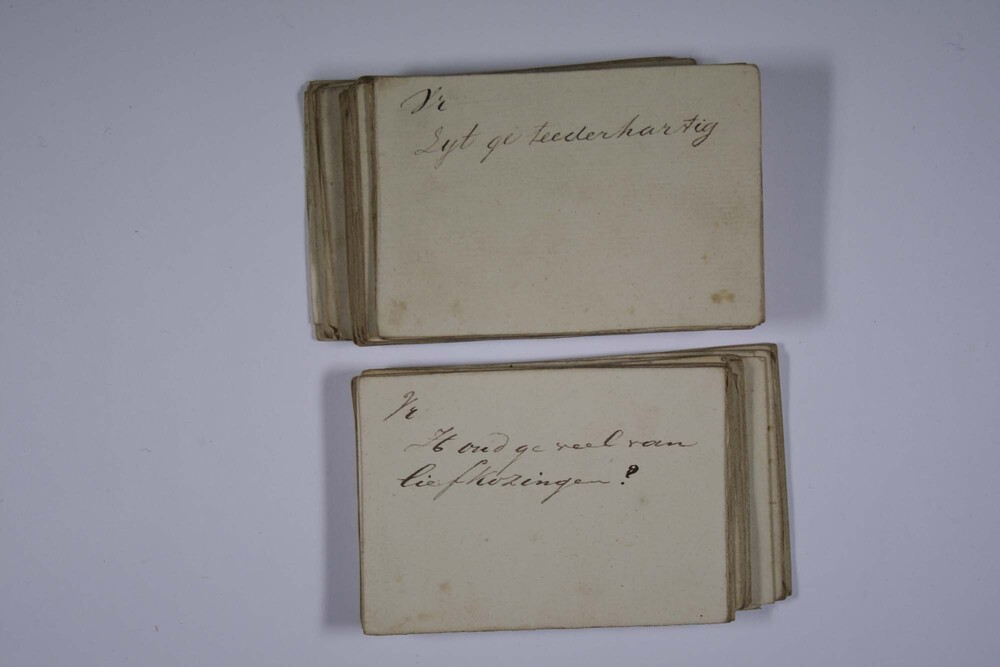 Vr
Zyt ge teederhartig
Vr
Houd ge veel van
liefkozingen?